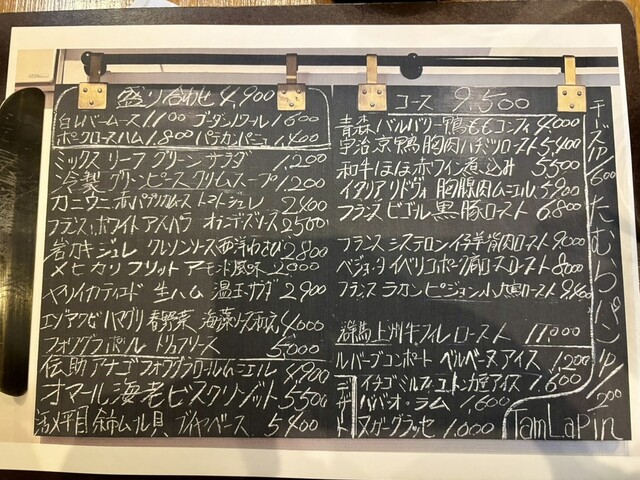 盛り合わせ 4,900
白レバームース 1100 ゴーダンノワール 1600
ポークロースハム 1,800 パテカンパーニュ 1,400
ミックスリーフグリーンサラダ 1,200
冷製グリーンピースクリームスープ 1,200
カニウニ赤パプリカムース トマトジュレ 2400
フランス ホワイトアスパラ オランデーズソース 2500
岩カキジュレ クレソンソース 西洋わさび 2800
メヒカリフリット アーモンド風味 2000
ヤリイカティエド 生ハム 温玉サラダ 2900
エゾアワビ ハマグリ 春野菜 海藻 4,000
フォワグラポワレ トリュフソース 5,000
伝助アナゴフォワグラロール ムニエル 4,900
オマール海老 ビスクリゾット 5500
平目 ムール貝 ブイヤベース 5400
コース 9,500
青森バルバリー鴨ももコンフィ 4,000
宇治京鴨胸肉 ロースト 5400
和牛ほほ赤ワイン煮込み 5500
イタリアリドヴォ胸腺肉ムニエル 5,900
フランスビゴール黒豚ロースト 6,800
フランスシステロン仔羊背肉ロースト 9000
ベジョータイベリコポーク肩ロースロースト 8,000
フランスラカン ピジョン小鳩ロースト 9,400
群馬上州牛フィレロースト 11,000
ルバーブコンポート ベルベーヌアイス 1,200
イチゴミルフィーユ アイス 1,600
ババ・オ・ラム 1,600
ヌガーグラッセ 1,000
デザート
チーズ1P 1600
たむらパン 1P 1200
TamLaPin